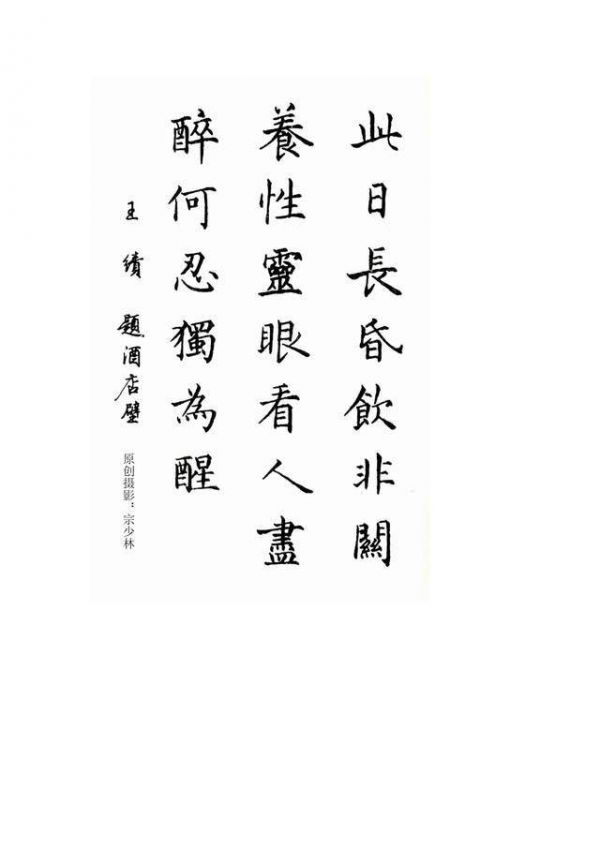 此日長昏飲非關
養性靈眼看人盡
醉何忍獨為醒
王績 題酒店壁
原创摄影：宗少林